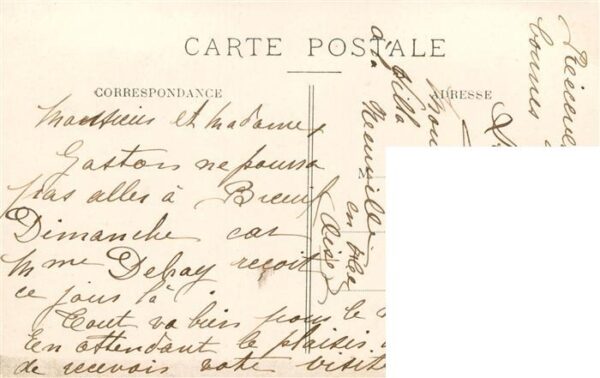 CARTE POSTALE
CORRESPONDANCE
ADRESSE
Monsieur et Madame,
Gaston ne pourra
pas aller à Breuil
Dimanche car
Mme Dehay reçoit
ce jours là
Tout va bien pour le
En attendant le plaisir
de recevoir votre visite
Recevez
bonnes
Villa
Neuville
en
Oise